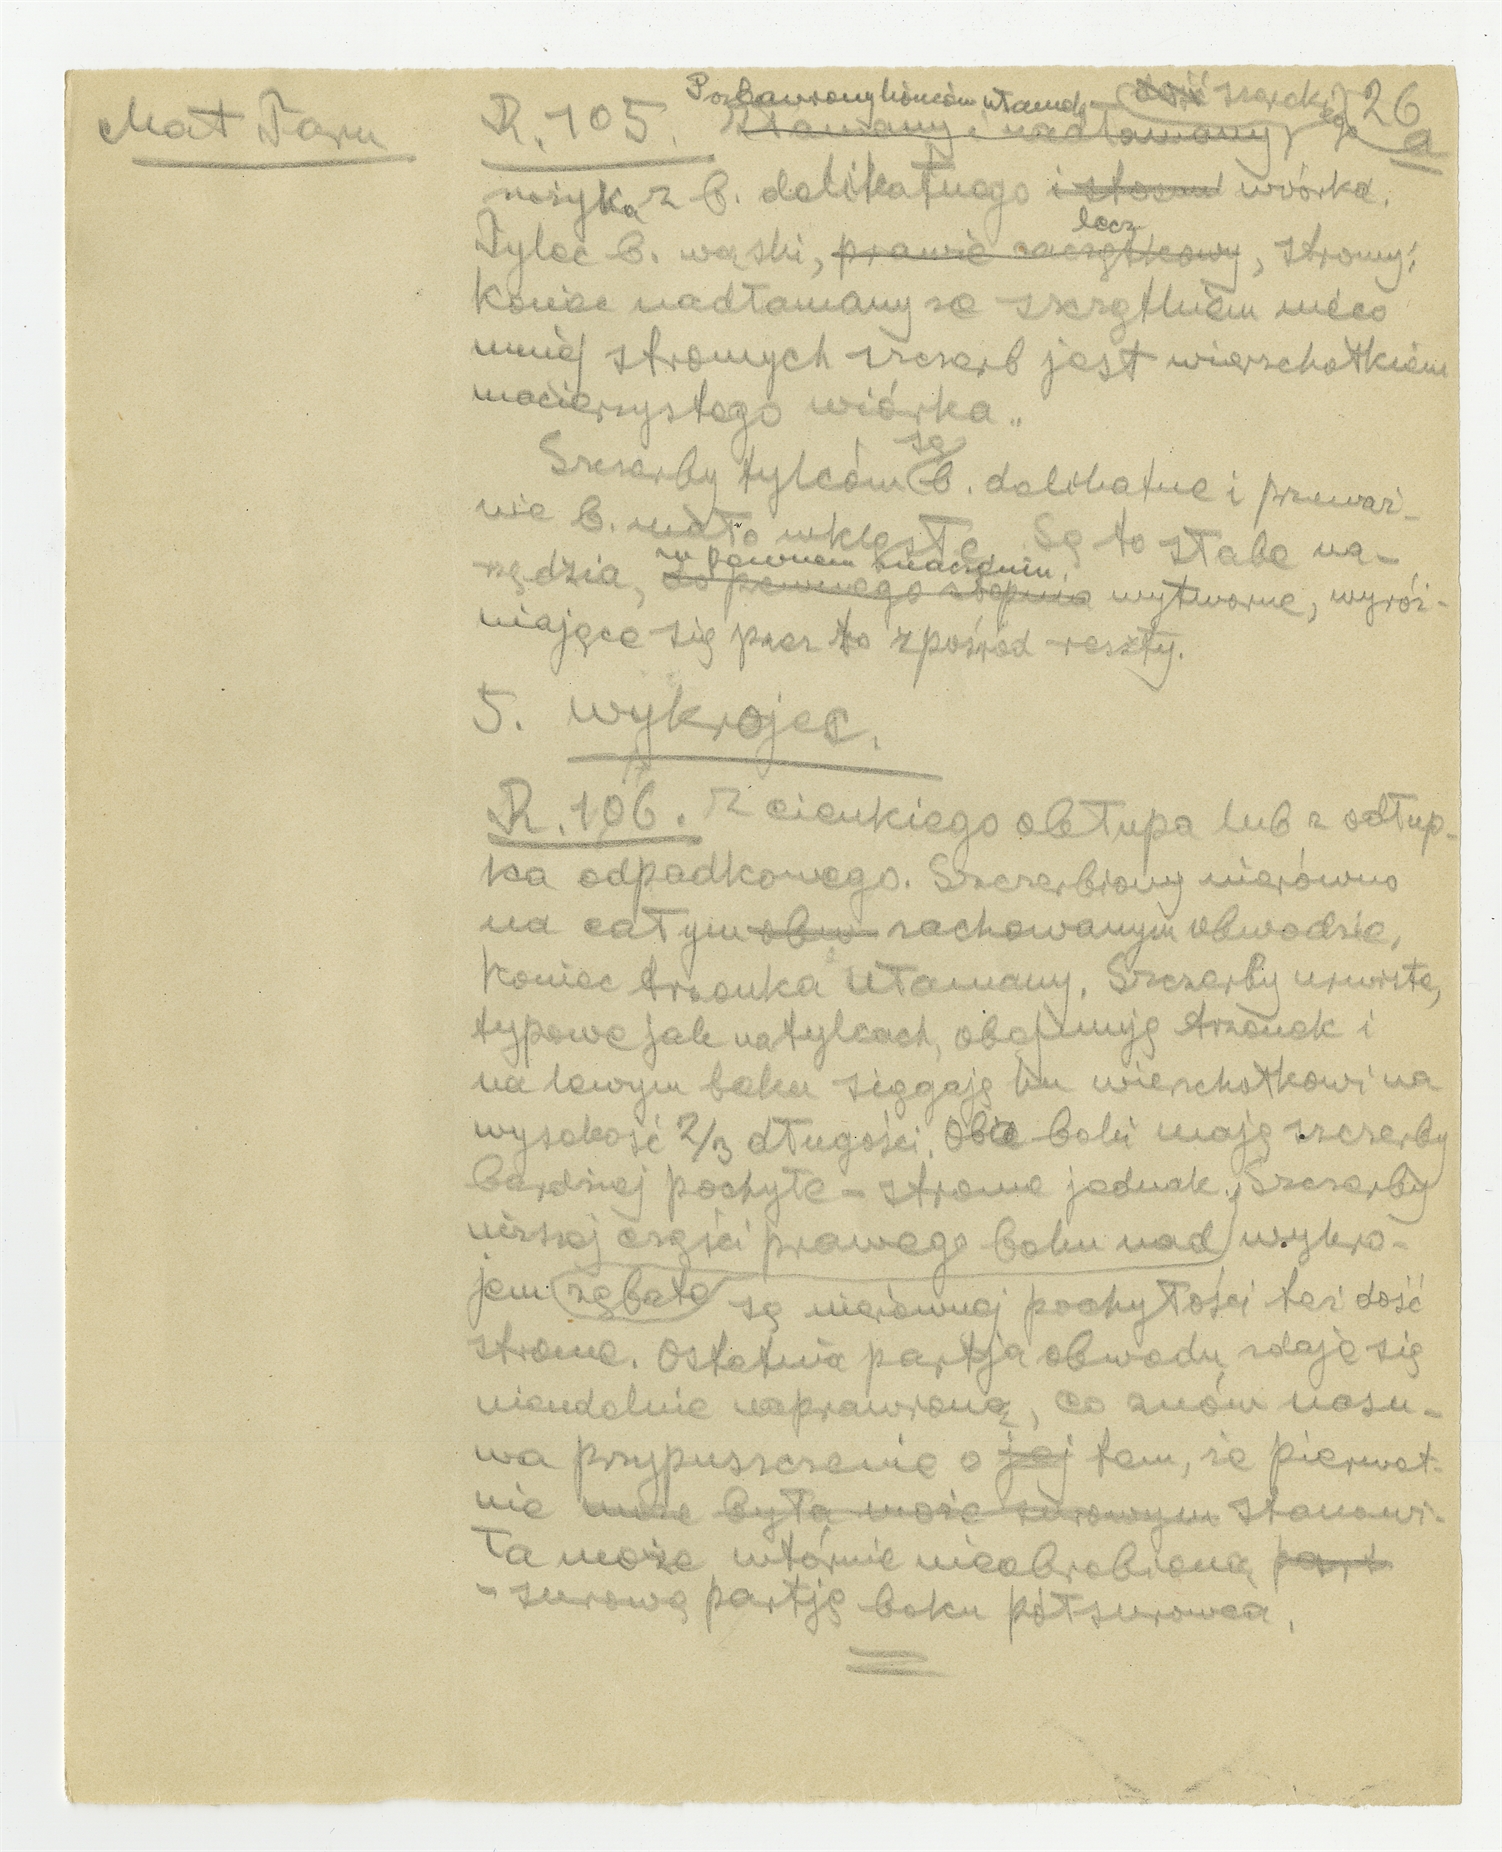 Mat Tarn
26
a
R. 105. Pozbawiony końców ułamek dość szerokiego
Złamany i nadłamany,
nożyka z b. delikatnego i wiórka.
lecz
Tylec b. wąski, prawie szczątkowy, stromy;
koniec nadłamany ze szczątkiem nieco
mniej stromych szczerb jest wierzchołkiem
macierzystego wiórka.
są
Szczerby tylców b. delikatne i przeważ-
nie b. mało wklęsłe. Są to słabe na-
w pewnem znaczeniu
rzędzia, do pewnego stopnia wytworne, wyróż-
niające się przez to zpośród reszty.
5. Wykrojec.
R. 106. Z cienkiego obłupa lub z odłup-
ka odpadkowego. Szczerbiony nierówno
na całym obw zachowanym obwodzie,
koniec trzonka ułamany. Szczerby urwiste,
typowe jak na tylcach, obejmują trzonek i
na lewym boku sięgają ku wierzchołkowi na
wysokość 2/3 długości. Obie boki mają szczerby
bardziej pochyłe - strome jednak. Szczerby
niższej części prawego boku nad wykro-
jem zębate są nierównej pochyłości też dość
strome. Ostatnia partja obwodu zdaje się
nieudolnie naprawioną, co znów nasu-
wa przypuszczenie o jej tem, że pierwot-
nie może była może surowym stanowi-
ła może wtórnie nieobrobioną part
- surową partję boku półsurowca.